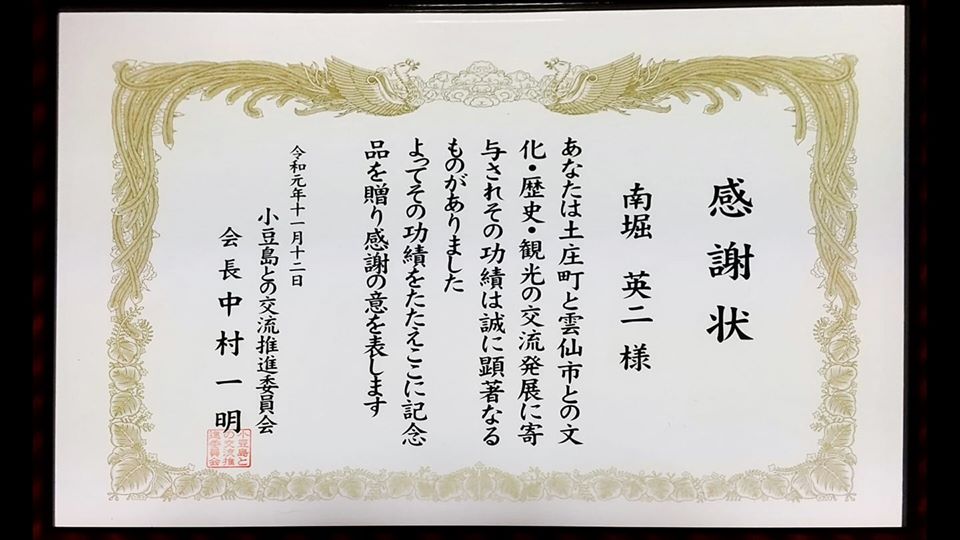 感謝状
南堀 英二 様
あなたは土庄町と雲仙市との文
化・歴史・観光の交流発展に寄
与されその功績は誠に顕著なる
ものがありました
よってその功績をたたえここに記念
品を贈り感謝の意を表します
令和元年十一月十二日
小豆島との交流推進委員会
会長 中村一明
小豆島と
の交流推
進委員会